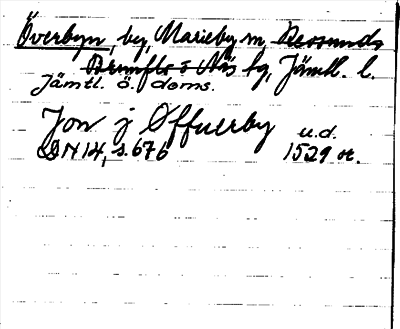 Överbyn, by, Marieby sn, Revsunds
Brunflo o Näs tg, Jämtl. l.
Jämtl. ö. doms.
Jon j Øffuerby u.d.
DN 14, s. 676 1529 or.